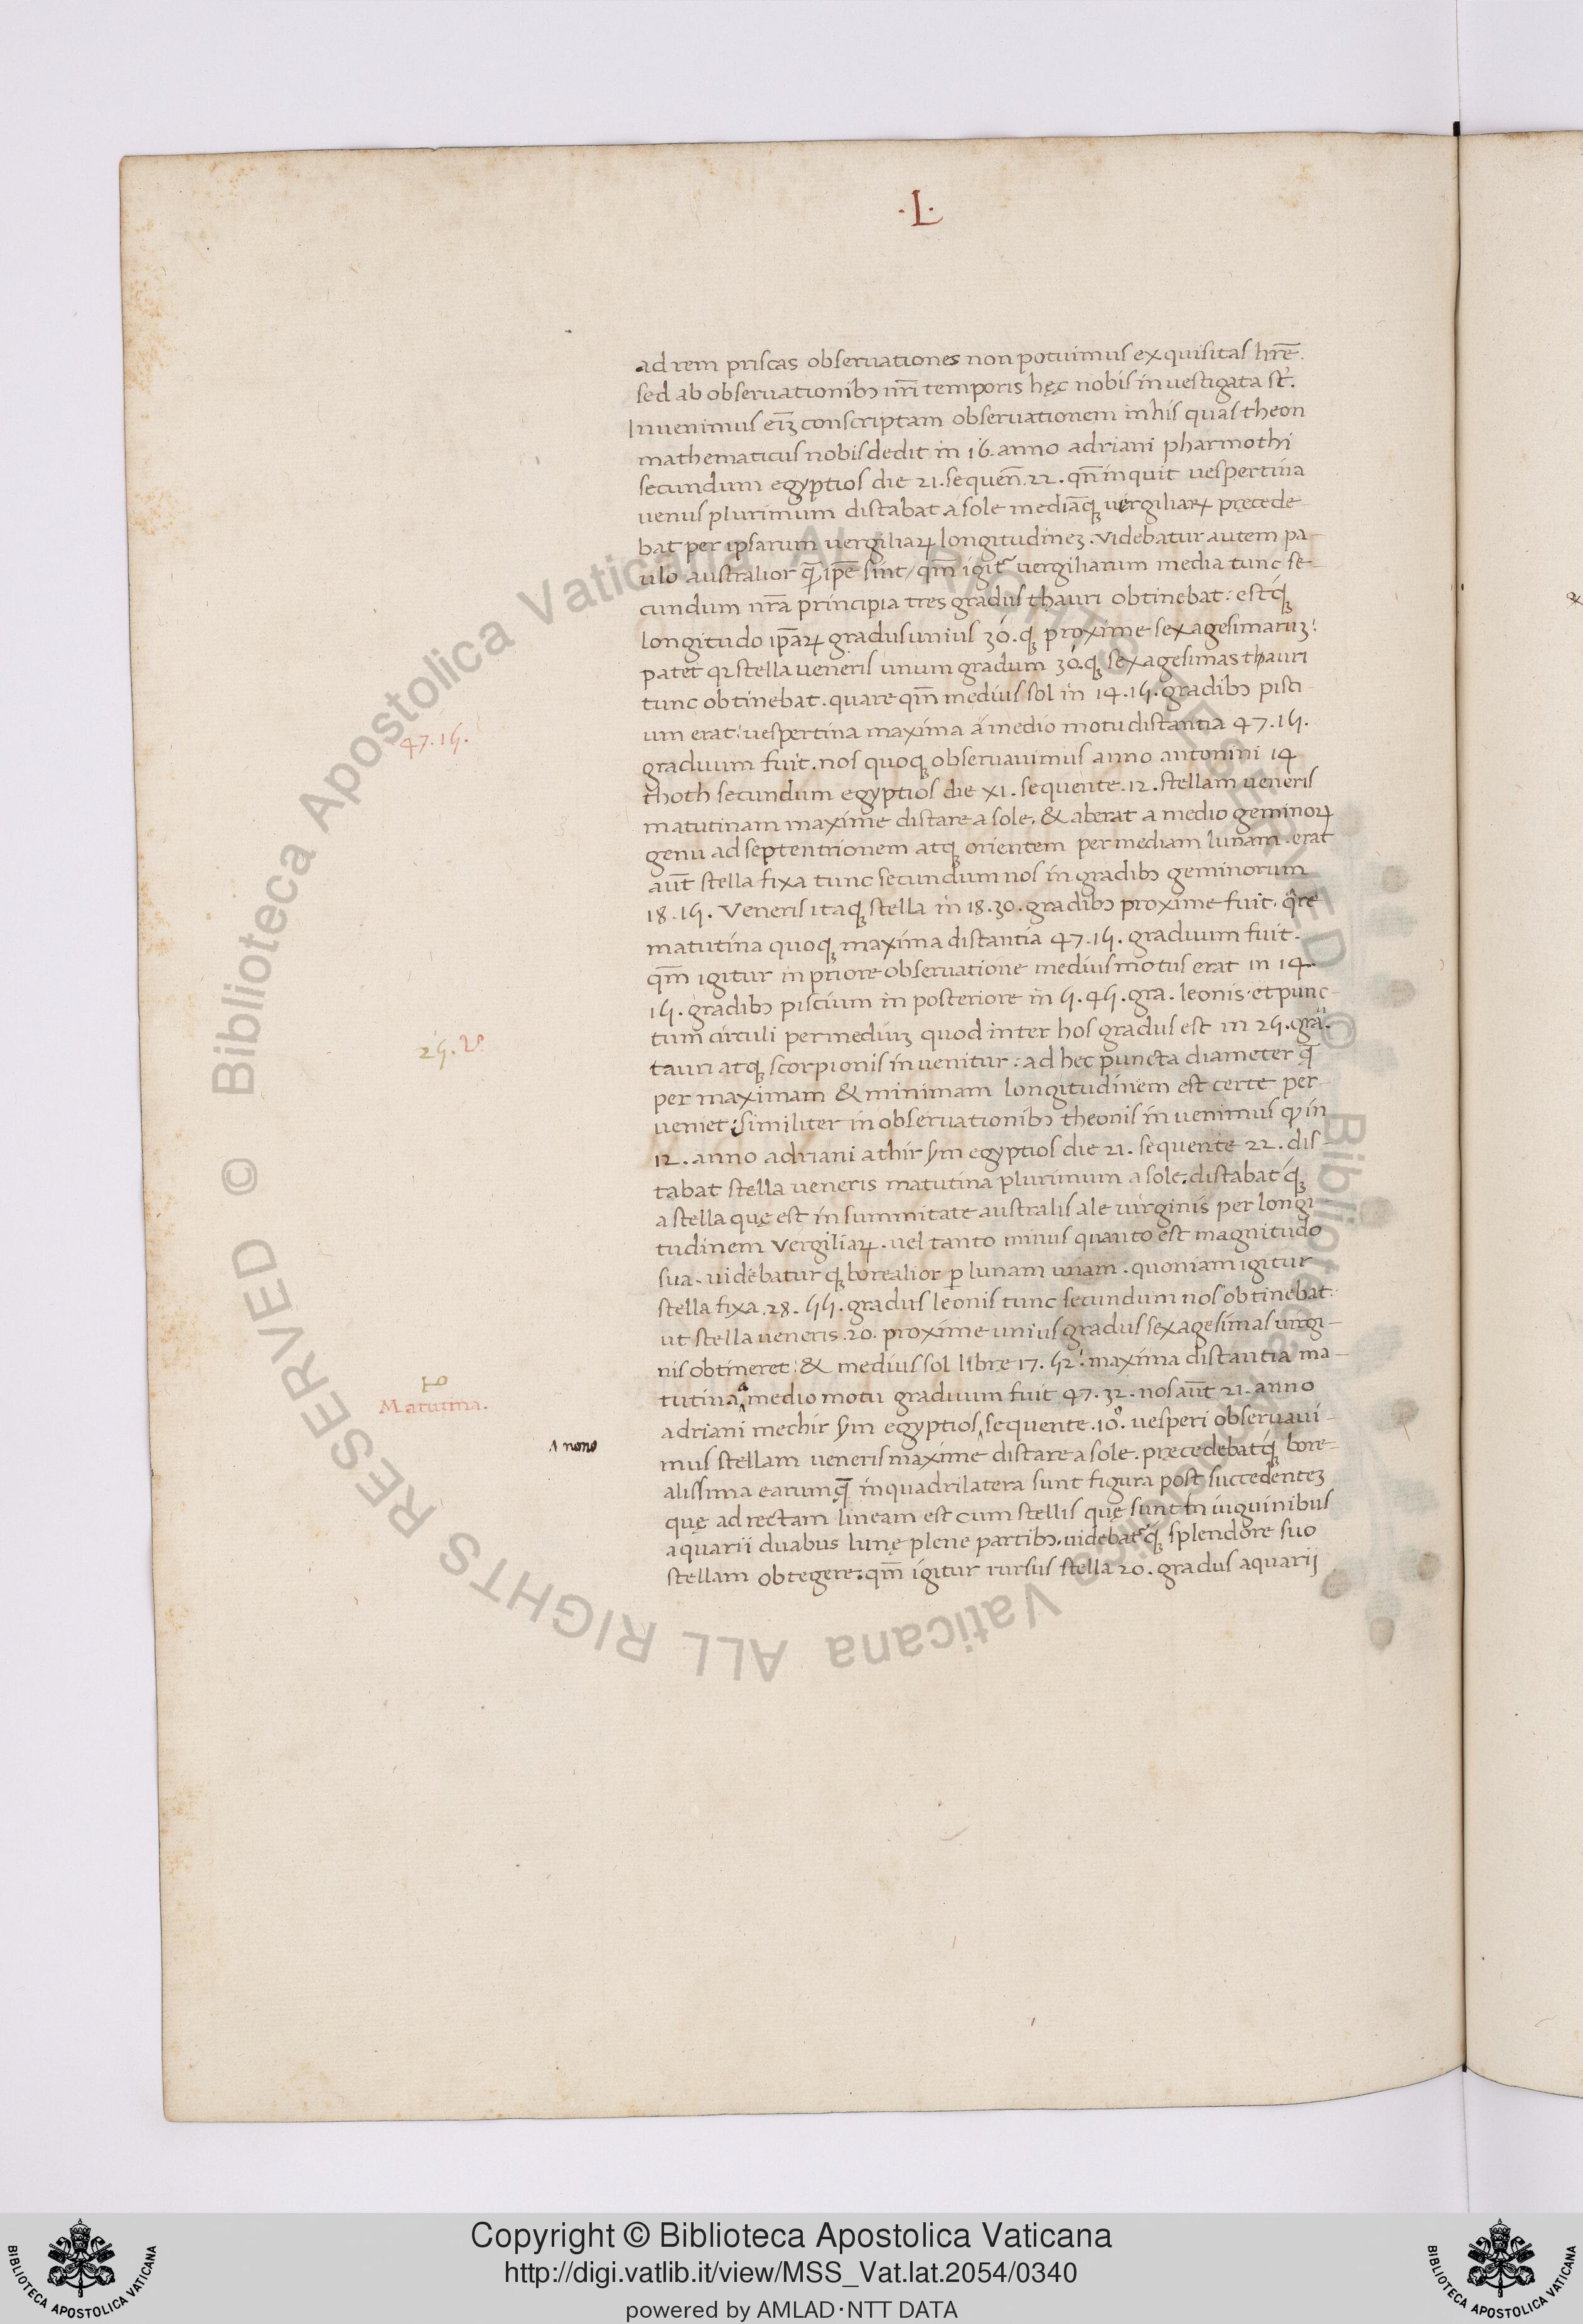 ·L·
ad rem priscas obseruationes non potuimus exquisitas hr̄e.
sed ab obseruationibꝫ nr̄i temporis hęc nobis inuestigata st̄.
Inuenimus eīꝫ conscriptam obseruationem in his quas theon
mathematicus nobis dedit in 16. anno adriani pharmothi
secundum egyptios die 21. sequen̄. 22. qn̄ inquit uespertina
uenus plurimum distabat a sole mediāqꝫ uergiliaꝝ precede-
bat per ipsarum uergiliaꝝ longitudineꝫ. videbatur autem pa-
ulo australior q̄ ip̄e sint/ qm̄ igit᷑ uergiliarum media tunc se-
cundum nr̄a principia tres gradus thauri obtinebat: estqꝫ
longitudo ip̄aꝝ gradus unius 30. qꝫ proxime sexagesimaruꝫ:
patet ꝙ stella ueneris unum gradum 30. qꝫ sexagesimas thauri
tunc obtinebat. quare qm̄ medius sol in 14. 15. gradibꝫ pisci-
um erat: uespertina maxima a medio motu distantia 47. 15.
graduum fuit. nos quoqꝫ obseruauimus anno antonini 14
thoth secundum egyptios die XI. sequente. 12. stellam ueneris
matutinam maxime distare a sole. & aberat a medio geminoꝝ
genu ad septentrionem atqꝫ orientem per mediam lunam. erat
aūt stella fixa tunc secundum nos in gradibꝫ geminorum
18. 15. Veneris itaqꝫ stella in 18. 30. gradibꝫ proxime fuit. q̄re
matutina quoqꝫ maxima distantia 47. 15. graduum fuit.
qm̄ igitur in priore obseruatione medius motus erat in 14.
15. gradibꝫ piscium in posteriore in 5. 45. gra. leonis. et punc-
tum circuli per mediuꝫ quod inter hos gradus est in 25. gra.
tauri atqꝫ scorpionis inuenitur: ad hec puncta diameter q̄
per maximam & minimam longitudinem est certe per-
ueniet: similiter in obseruationibꝫ theonis inuenimus ꝙ in
12. anno adriani athir sm̄ egyptios die 21. sequente 22. dis-
tabat stella ueneris matutina plurimum a sole. distabatqꝫ
a stella quę est in summitate australis ale uirginis per longi-
tudinem Vergiliaꝝ. uel tanto minus quanto est magnitudo
sua. uidebatur qꝫ borealior ꝑ lunam unam. quoniam igitur
stella fixa. 28. 55. gradus leonis tunc secundum nos obtinebat.
ut stella ueneris. 20. proxime unius gradus sexagesimas uirgi-
nis obtineret: & medius sol libre 17. 52. maxima distantia ma-
tutina a medio motu graduum fuit 47. 32. nos aūt 21. anno
adriani mechir sm̄ egyptios ‸ sequente. 10. uesperi obseruaui-
mus stellam ueneris maxime distare a sole. precedebatqꝫ bore-
alissima earum q̄ in quadrilatera sunt figura post succedenteꝫ
quę ad rectam lineam est cum stellis quę sunt in inguinibus
aquarii duabus lunę plene partibꝫ. uidebat᷑qꝫ splendore suo
stellam obtegere. qm̄ igitur rursus stella 20. gradus aquarij
47. 15.
25.
Matutina.
‸ nono
Copyright © Biblioteca Apostolica Vaticana
http://digi.vatlib.it/view/MSS_Vat.lat.2054/0340
powered by AMLAD·NTT DATA
BIBLIOTECA APOSTOLICA VATICANA
BIBLIOTECA APOSTOLICA VATICANA
© Biblioteca Apostolica Vaticana ALL RIGHTS RESERVED
© Biblioteca Apostolica Vaticana ALL RIGHTS RESERVED